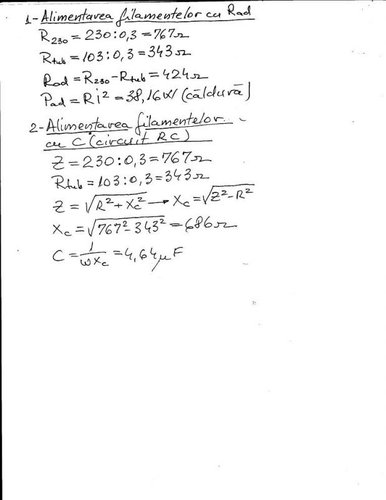 1-Alimentarea filamentelor cu Rad
R230=230:0,3=767Ω
Rtub=103:0,3=343Ω
Rad=R230-Rtub=424Ω
Pad=Ri²=38,16W (căldură)
2-Alimentarea filamentelor...
cu C (circuit RC)
Z=230:0,3=767Ω
Rtub=103:0,3=343Ω
Z=√R²+Xc² → Xc=√Z²-R²
Xc=√767²-343²=686Ω
C=1/ωXc=4,64μF